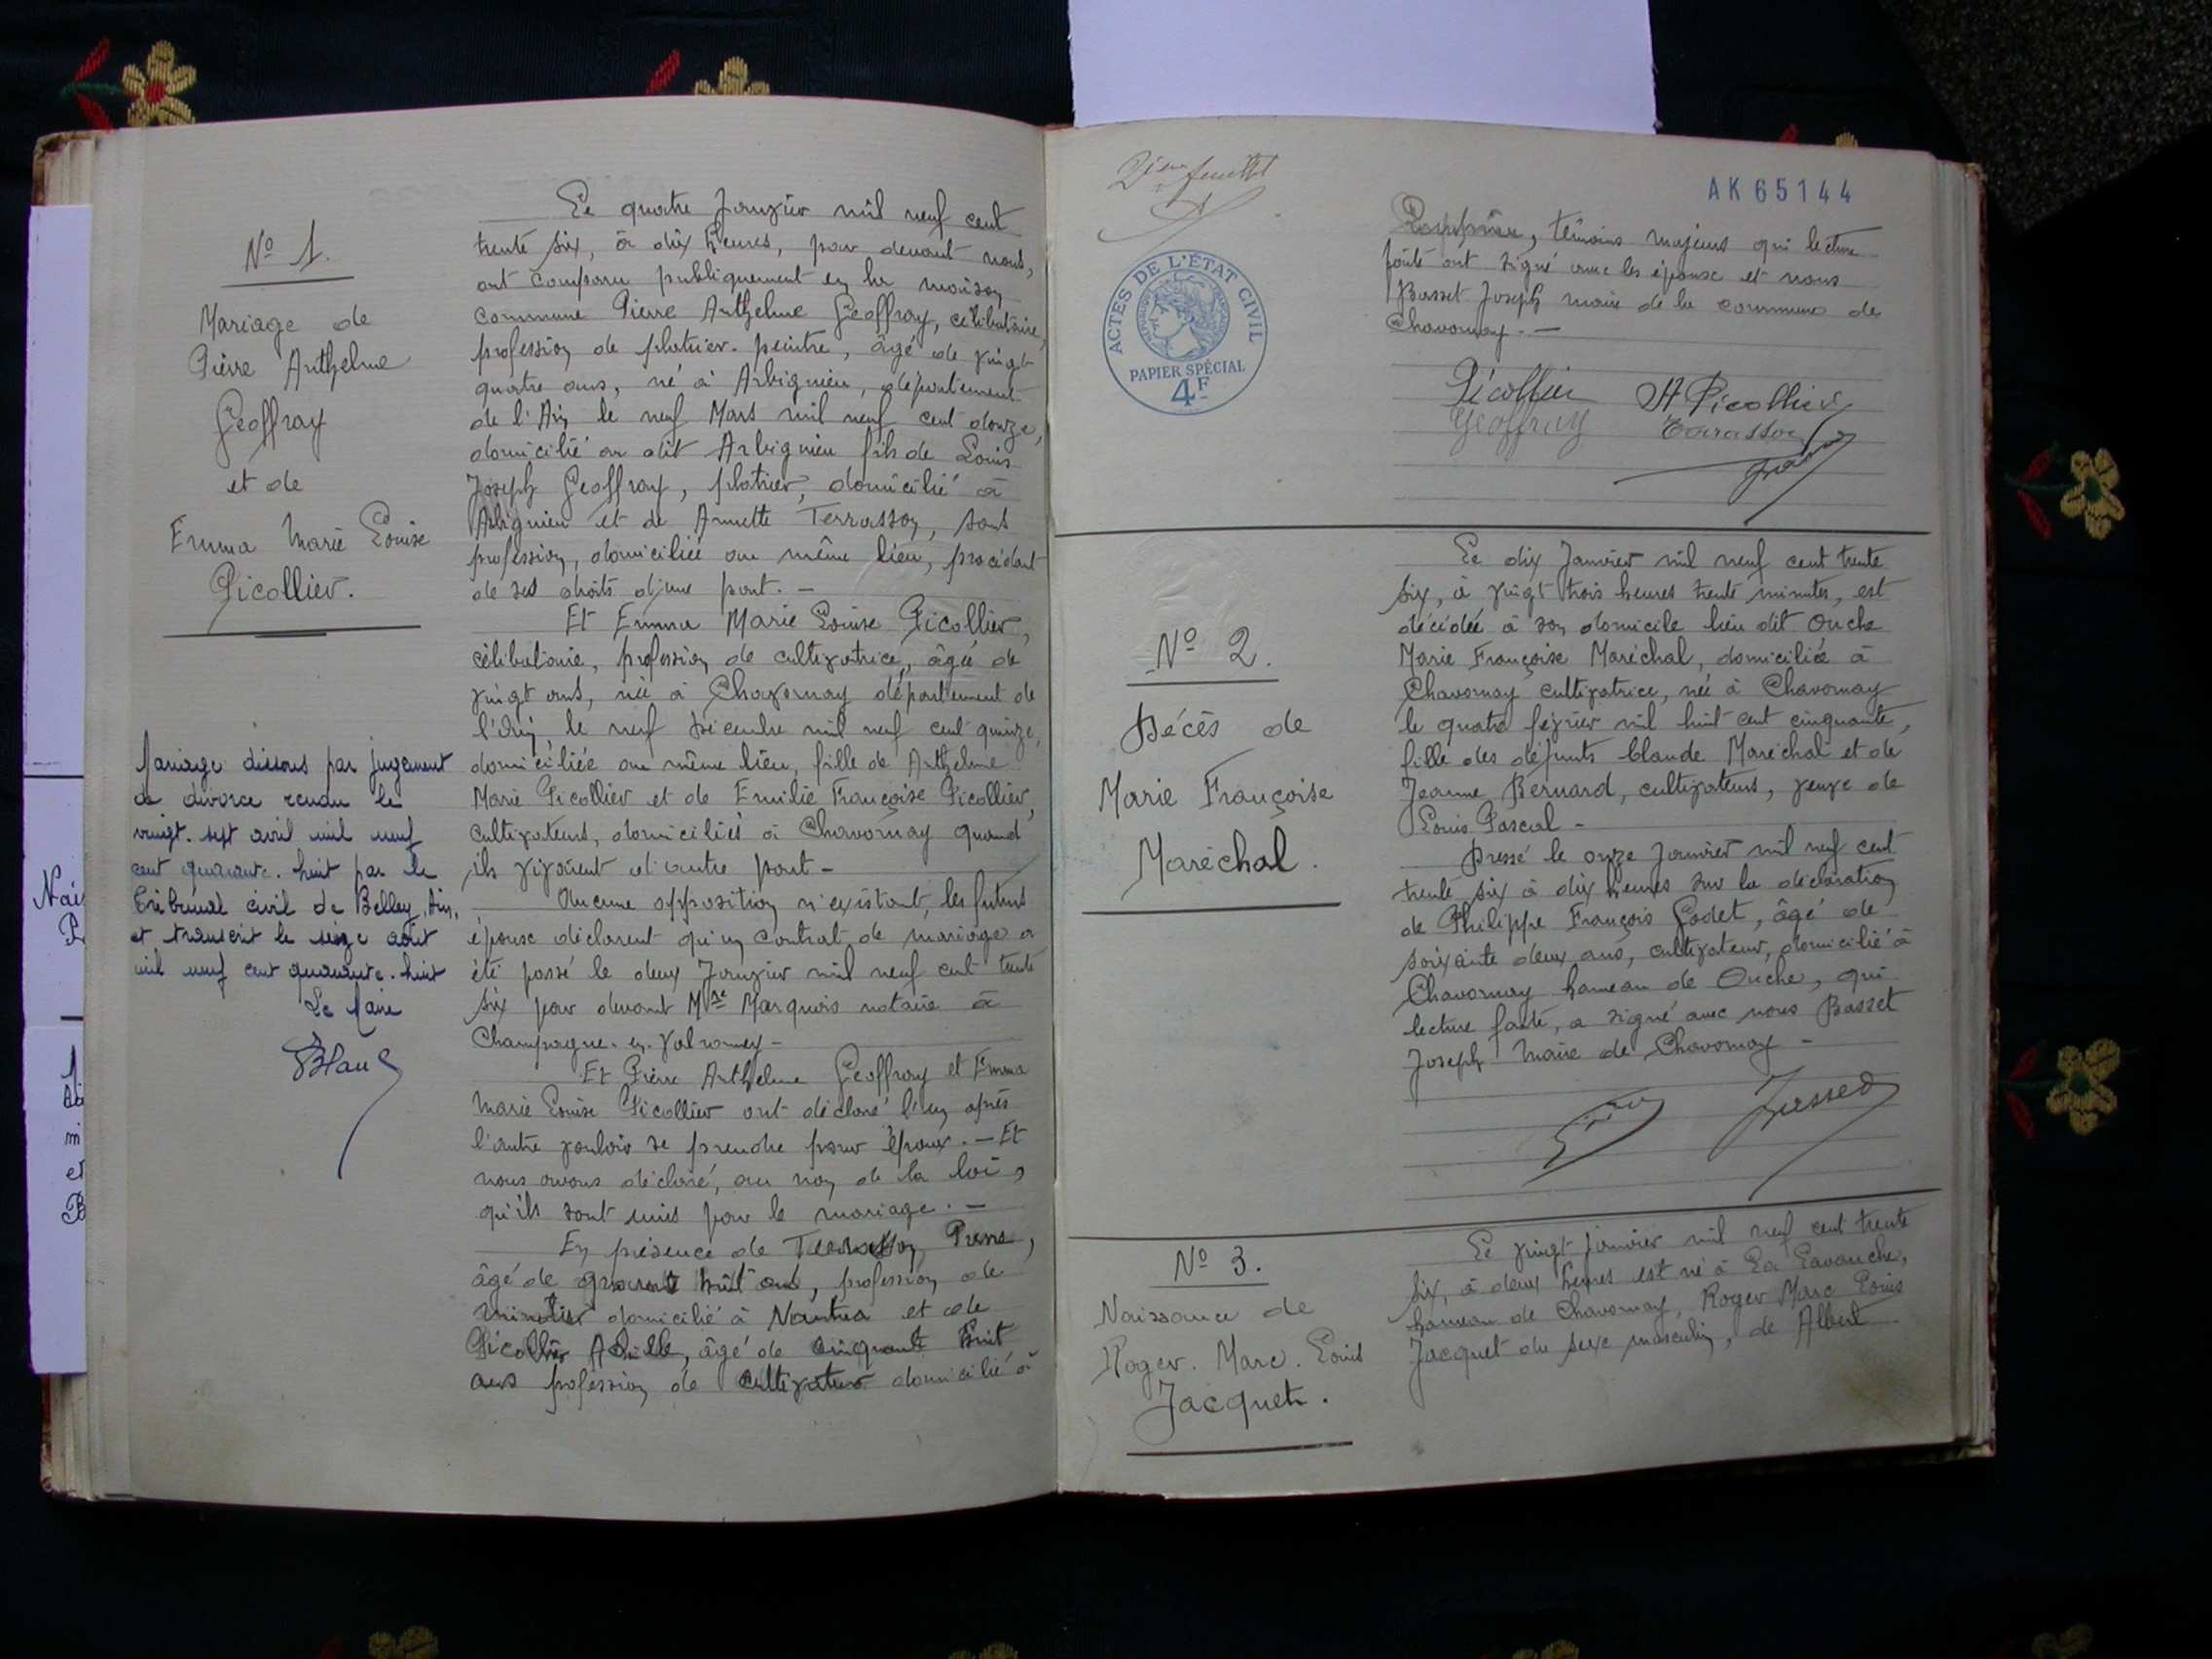 Nº 1.
Mariage de
Pierre Anthelme
Geoffray
et de
Emma Marie Louise
Picollier.
Mariage dissous par jugement
de divorce rendu le
vingt-sept avril mil neuf
cent quarante-huit par le
Tribunal civil de Belley, Ain,
et transcrit le seize août
mil neuf cent quarante-huit
Le Maire
Le quatre Janvier mil neuf cent
trente six, à dix heures, par devant nous,
ont comparu publiquement en la maison
commune Pierre Anthelme Geoffray, célibataire,
profession de platrier-peintre, âgé de vingt
quatre ans, né à Arbignieu, département
de l'Ain le neuf Mars mil neuf cent douze,
domicilié au dit Arbignieu fils de Louis
Joseph Geoffray, platrier, domicilié à
Arbignieu et de Annette Terrasson, sans
profession, domiciliée au même lieu, procédant
de ses droits d'une part. -
Et Emma Marie Louise Picollier,
célibataire, profession de cultivatrice, âgée de
vingt ans, née à Chavornay département de
l'Ain, le neuf Décembre mil neuf cent quinze,
domiciliée au même lieu, fille de Anthelme
Marie Picollier et de Emilie Françoise Picollier,
cultivateurs, domiciliés à Chavornay quand
ils vivaient d'autre part -
Aucune opposition n'existant, les futurs
épouse déclarent qu'un contrat de mariage a
été passé le deux Janvier mil neuf cent trente
six par devant Mre Marquis notaire à
Champagne-en-Valromey -
Et Pierre Anthelme Geoffray et Emma
Marie Louise Picollier ont déclaré l'un après
l'autre vouloir se prendre pour époux. - Et
nous avons déclaré, au nom de la loi,
qu'ils sont unis par le mariage. -
En présence de Terrasson Pierre,
âgé de quarante huit ans, profession de
domicilié à Nantua et de
Picollier Achille, âgé de cinquante huit
ans profession de cultivateur domicilié à
2ième feuillet
ACTES DE L'ÉTAT CIVIL
PAPIER SPÉCIAL
4F
AK65144
témoins majeurs qui lecture
faite ont signé avec les épouse et nous
Basset Joseph maire de la commune de
Chavornay. -
Picollier A Picollier
Geoffray Terrasson
Nº 2.
Décès de
Marie Françoise
Maréchal.
Le dix Janvier mil neuf cent trente
six, à vingt trois heures trente minutes, est
décédée à son domicile lieu dit Ouche
Marie Françoise Maréchal, domiciliée à
Chavornay cultivatrice, née à Chavornay
le quatre février mil huit cent cinquante,
fille des défunts Claude Maréchal et de
Jeanne Bernard, cultivateurs, veuve de
Louis Pascal -
Dressé le onze Janvier mil neuf cent
trente six à dix heures sur la déclaration
de Philippe François Godet, âgé de
soixante deux ans, cultivateur, domicilié à
Chavornay hameau de Ouche, qui
lecture faite, a signé avec nous Basset
Joseph Maire de Chavornay -
Basset
Nº 3.
Naissance de
Roger. Marc. Louis
Jacquet.
Le vingt janvier mil neuf cent trente
six, à deux heures est né à La Lavanche,
hameau de Chavornay, Roger Marc Louis
Jacquet du sexe masculin, de Albert